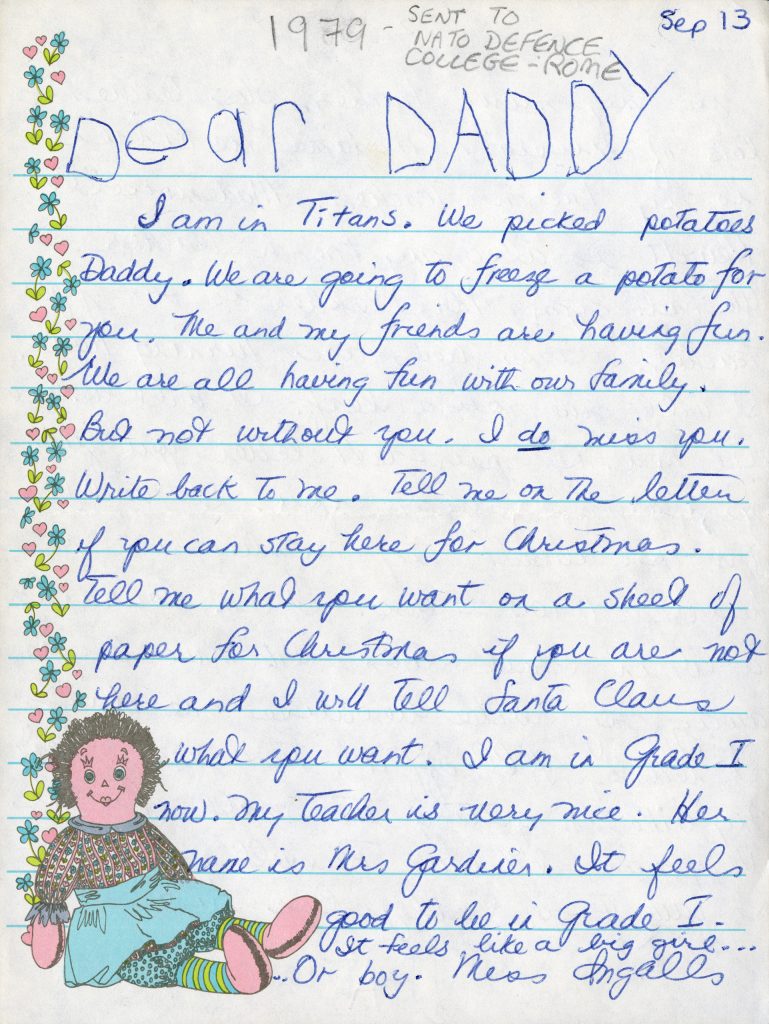 1979 - SENT TO
NATO DEFENCE
COLLEGE - ROME
Sep 13
Dear DADDY
I am in Titans. We picked potatoes
Daddy. We are going to freeze a potato for
you. Me and my friends are having fun.
We are all having fun with our family.
But not without you. I do miss you.
Write back to me. Tell me on the letter
if you can stay here for Christmas.
Tell me what you want on a sheet of
paper for Christmas if you are not
here and I will tell Santa Claus
what you want. I am in Grade I
now. My teacher is very nice. Her
name is Mrs Gardiner. It feels
good to be in Grade I.
It feels like a big girl...
...Or boy. Miss Ingalls